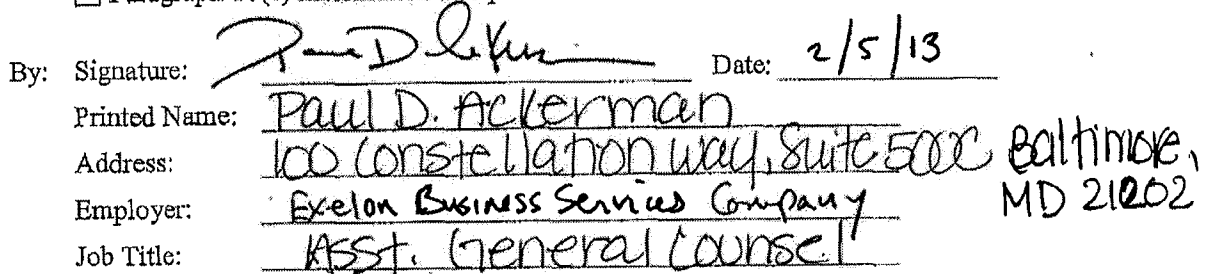 By: Signature: Date: 2/5/13
Printed Name: Paul D. Ackerman
Address: 100 Constellation Way, Suite 500C Baltimore, MD 21202
Employer: Exelon Business Services Company
Job Title: Asst. General Counsel